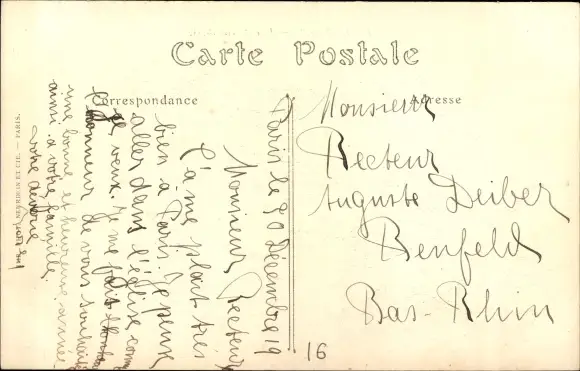 Carte Postale
Correspondance
Adresse
Paris le 30 Décembre 19
Monsieur Recteur
Ça me plaît très
bien à Paris. Je peux
aller dans l'église comme
je veux. Je me fait
honneur de vous souhaiter
une bonne et heureuse année
ainsi à votre famille.
votre
Monsieur
Recteur
Auguste Deiber
Benfeld
Bas-Rhin
16
ET CIE. — PARIS.